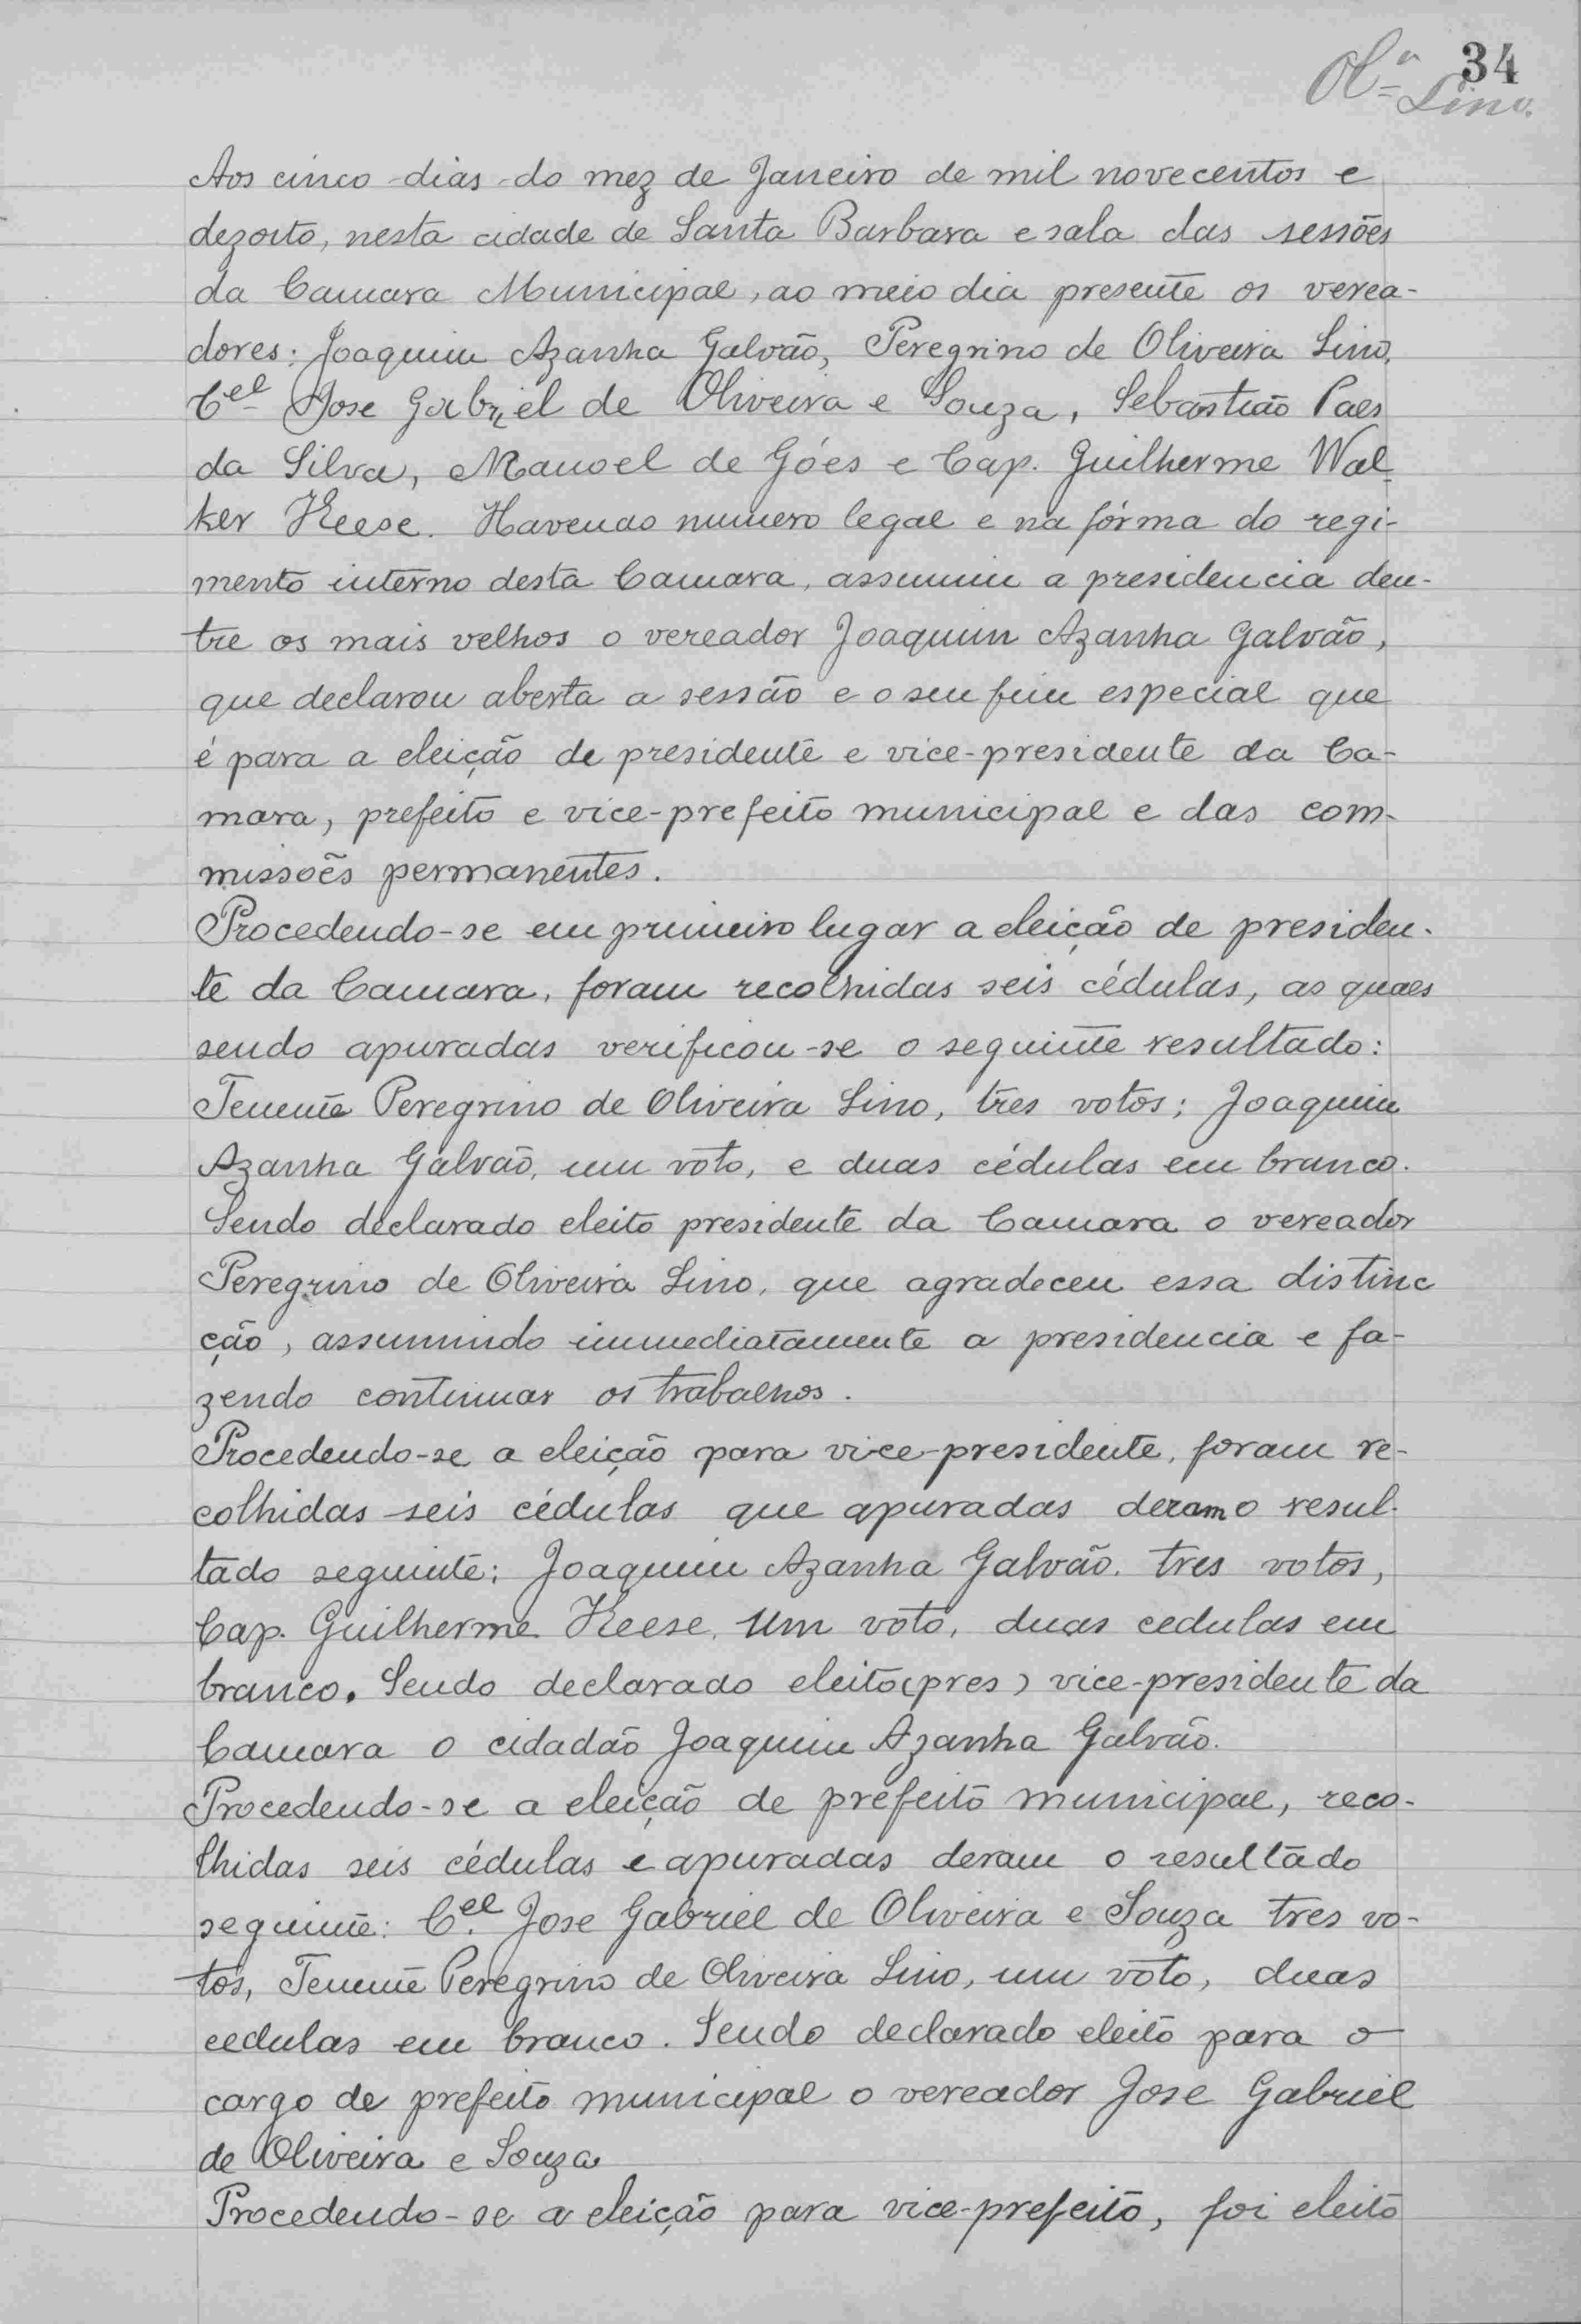 34
Olª Lino.
Aos cinco dias do mez de Janeiro de mil novecentos e
dezoito, nesta cidade de Santa Barbara e sala das sessões
da Camara Municipal, ao meio dia presente os verea-
dores: Joaquim Azanha Galvão, Peregrino de Oliveira Lino,
Cel Jose Gabriel de Oliveira e Souza, Sebastião Paes
da Silva, Manoel de Góes e Cap. Guilherme Wal-
ker Keese. Havendo numero legal e na fórma do regi-
mento interno desta Camara, assumiu a presidencia den-
tre os mais velhos o vereador Joaquim Azanha Galvão,
que declarou aberta a sessão e o seu fim especial que
é para a eleição de presidente e vice-presidente da Ca-
mara, prefeito e vice-prefeito municipal e das com-
missões permanentes.
Procedendo-se em primeiro lugar a eleição de presiden-
te da Camara, foram recolhidas seis cédulas, as quaes
sendo apuradas verificou-se o seguinte resultado:
Tenente Peregrino de Oliveira Lino, tres votos; Joaquim
Azanha Galvão, um voto, e duas cédulas em branco.
Sendo declarado eleito presidente da Camara o vereador
Peregrino de Oliveira Lino, que agradeceu essa distinc
ção, assumindo immediatamente a presidencia e fa-
zendo continuar os trabalhos.
Procedendo-se a eleição para vice-presidente, foram re-
colhidas seis cédulas que apuradas deram o resul-
tado seguinte: Joaquim Azanha Galvão. tres votos,
Cap. Guilherme Keese, um voto, duas cedulas em
branco. Sendo declarado eleito (pres) vice-presidente da
Camara o cidadão Joaquim Azanha Galvão.
Procedendo-se a eleição de prefeito municipal, reco-
lhidas seis cédulas e apuradas deram o resultado
seguinte: Cel. Jose Gabriel de Oliveira e Souza tres vo-
tos, Tenente Peregrino de Oliveira Lino, um voto, duas
cedulas em branco. Sendo declarado eleito para o
cargo de prefeito municipal o vereador Jose Gabriel
de Oliveira e Souza
Procedendo-se a eleição para vice-prefeito, foi eleito